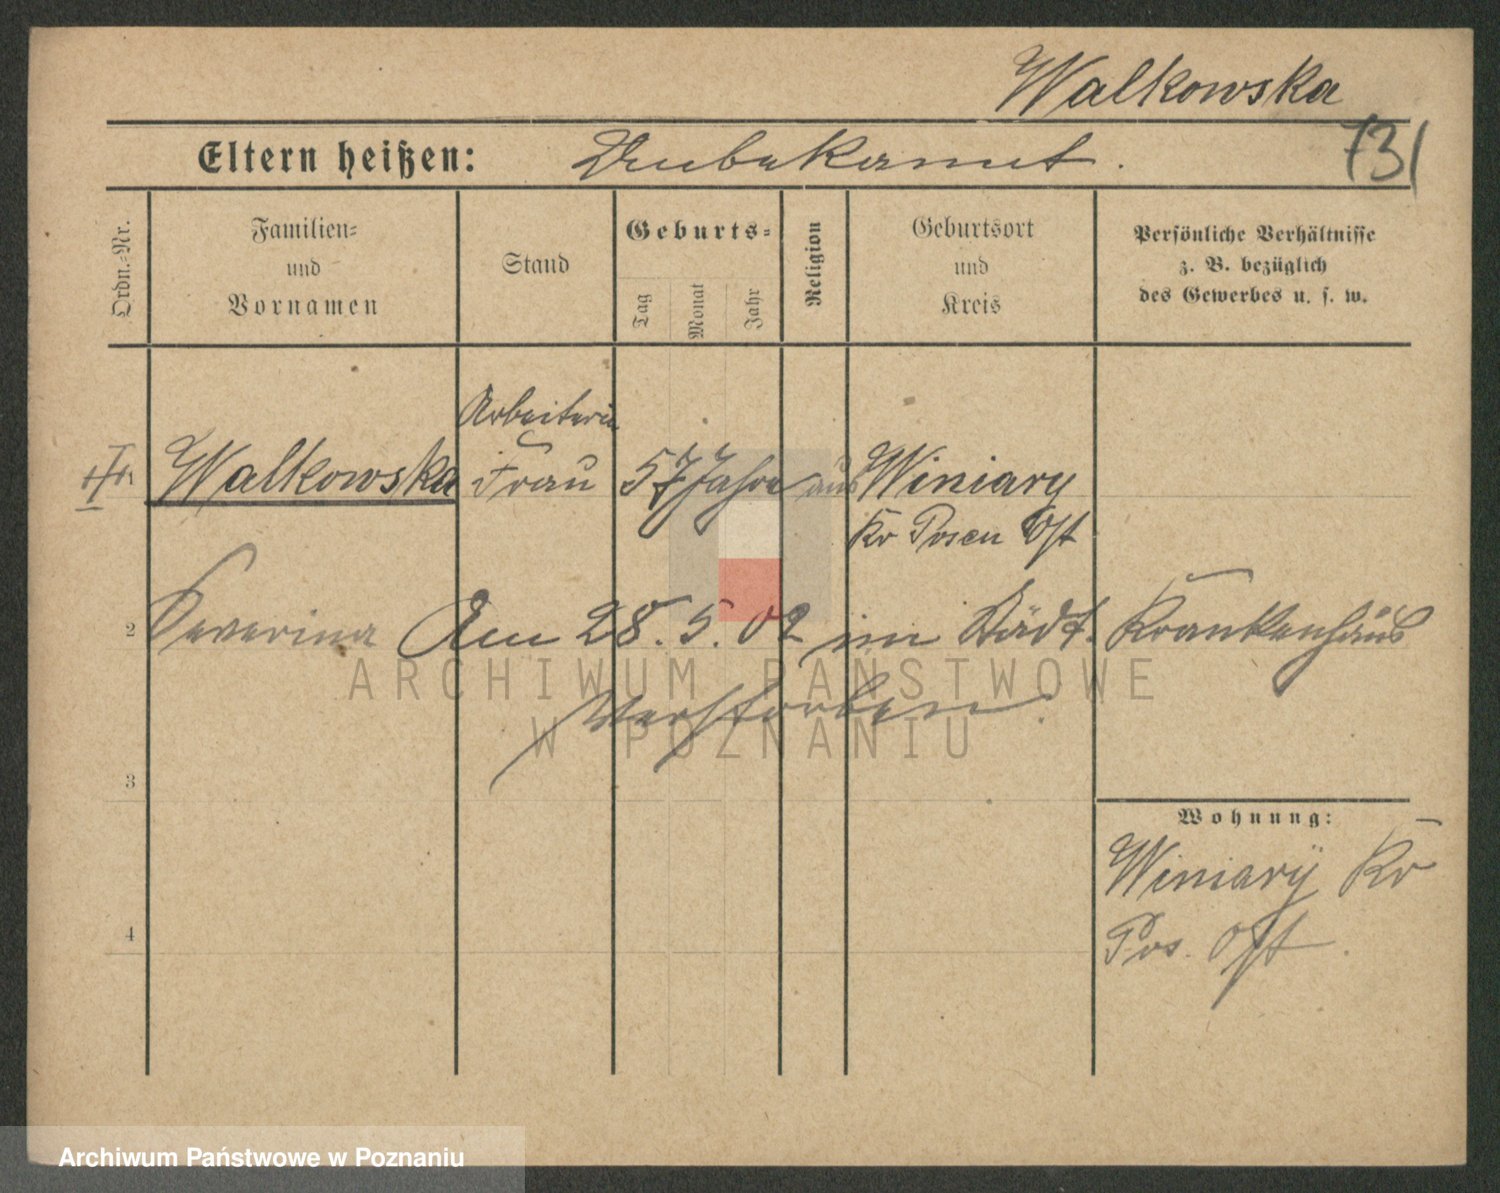 Walkowska
731
Eltern heißen: Unbekannt.
Ordn.-Nr.
Familien-
und
Vornamen
Stand
Geburts-
Tag
Monat
Jahr
Religion
Geburtsort
und
Kreis
Persönliche Verhältnisse
z. B. bezüglich
des Gewerbes u. s. w.
Arbeiterin
Walkowska Frau 57 Jahre aus Winiary
Kr Posen Ost
2 Severina Am 28. 5. 02 im Städt. Krankenhaus
verstorben.
ARCHIWUM PAŃSTWOWE
W POZNANIU
3
Wohnung:
Winiary Kr
Pos. Ost.
4
Archiwum Państwowe w Poznaniu